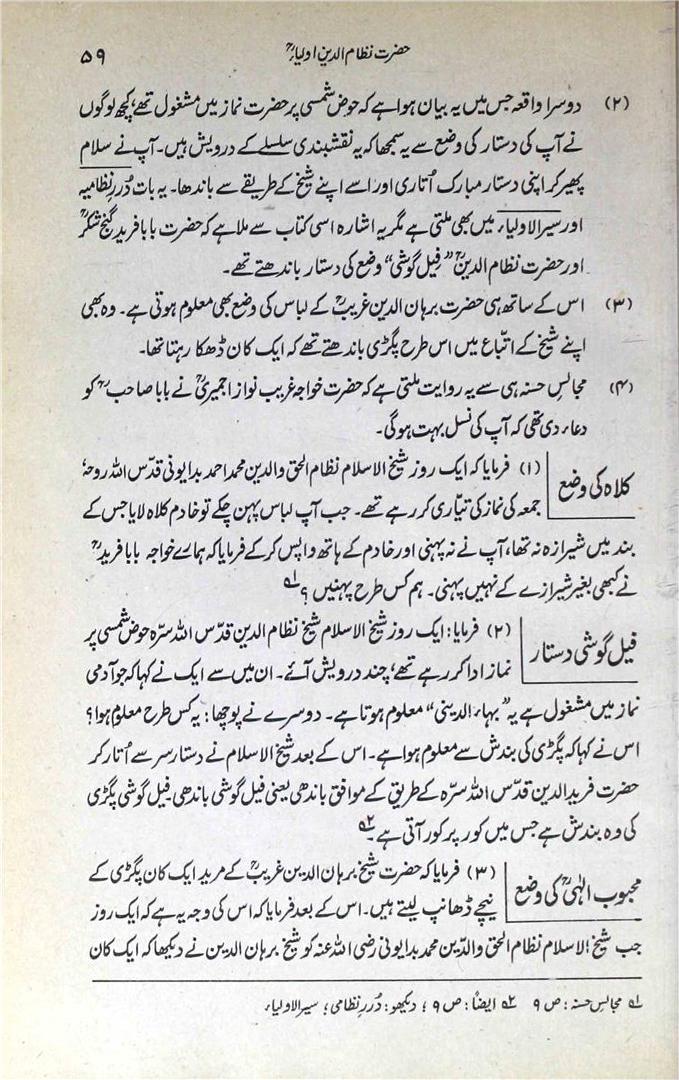 حضرت نظام الدین اولیاءؒ
۵۹
(۲) دوسرا واقعہ جس میں یہ بیان ہوا ہے کہ حوض شمسی پر حضرت نماز میں مشغول تھے، کچھ لوگوں
نے آپ کی دستار کی وضع سے یہ سمجھا کہ یہ نقشبندی سلسلے کے درویش ہیں۔ آپ نے سلام
پھیر کر اپنی دستار مبارک اُتاری اور اسے اپنے شیخ کے طریقے سے باندھا۔ یہ بات دُررِ نظامیہ
اور سیر الاولیاء میں بھی ملتی ہے مگر یہ اشارہ اسی کتاب سے ملا ہے کہ حضرت بابا فرید گنج شکرؒ
اور حضرت نظام الدینؒ ”فیل گوشی“ وضع کی دستار باندھتے تھے۔
(۳) اس کے ساتھ ہی حضرت برہان الدین غریبؒ کے لباس کی وضع بھی معلوم ہوتی ہے۔ وہ بھی
اپنے شیخ کے اتباع میں اس طرح پگڑی باندھتے تھے کہ ایک کان ڈھکا رہتا تھا۔
(۴) مجالسِ حسنہ ہی سے یہ روایت ملتی ہے کہ حضرت خواجہ غریب نواز اجمیریؒ نے بابا صاحبؒ کو
دعاء دی تھی کہ آپ کی نسل بہت ہوگی۔
کلاہ کی وضع
(۱) فرمایا کہ ایک روز شیخ الاسلام نظام الحق والدین محمد احمد بدایونی قدّس اللہ روحہٗ
جمعہ کی نماز کی تیّاری کر رہے تھے۔ جب آپ لباس پہن چکے تو خادم کلاہ لایا جس کے
بند میں شیرازہ نہ تھا، آپ نے نہ پہنی اور خادم کے ہاتھ واپس کر کے فرمایا کہ ہمارے خواجہ بابا فریدؒ
نے کبھی بغیر شیرازے کے نہیں پہنی۔ ہم کس طرح پہنیں ؟ ۱؎
فیل گوشی دستار
(۲) فرمایا : ایک روز شیخ الاسلام شیخ نظام الدین قدّس اللہ سرّہ حوض شمسی پر
نماز ادا کر رہے تھے، چند درویش آئے۔ ان میں سے ایک نے کہا کہ جو آدمی
نماز میں مشغول ہے یہ ”بہاء الدینی“ معلوم ہوتا ہے۔ دوسرے نے پوچھا : یہ کس طرح معلوم ہوا ؟
اس نے کہا کہ پگڑی کی بندش سے معلوم ہوا ہے۔ اس کے بعد شیخ الاسلام نے دستار سر سے اُتار کر
حضرت فرید الدین قدّس اللہ سرّہ کے طریق کے موافق باندھی یعنی فیل گوشی باندھی۔ فیل گوشی پگڑی
کی وہ بندش ہے جس میں کور پر کور آتی ہے۔ ۲؎
محبوب الٰہیؒ کی وضع
(۳) فرمایا کہ حضرت شیخ برہان الدین غریبؒ کے مرید ایک کان پگڑی کے
نیچے ڈھانپ لیتے ہیں۔ اس کے بعد فرمایا کہ اس کی وجہ یہ ہے کہ ایک روز
جب شیخ الاسلام نظام الحق والدّین محمد بدایونی رضی اللہ عنہ کو شیخ برہان الدین نے دیکھا کہ ایک کان
۱؎ مجالسِ حسنہ : ص ۹ ۲؎ ایضاً : ص ۹ ؛ دیکھو : دُررِ نظامی ؛ سیر الاولیاء